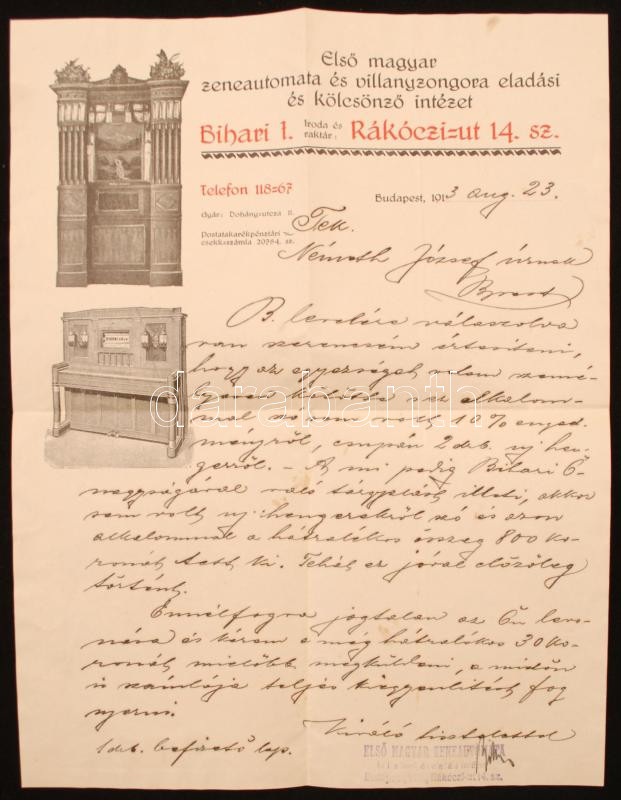 Első magyar
zeneautomata és villanyzongora eladási
és kölcsönző intézet
Bihari I. Iroda és raktár: Rákóczi=ut 14. sz.
Telefon 118=67
Budapest, 1913 aug. 23.
Gyár: Dohány-utcza
Postatakarékpénztári
csekkszámla 20984. sz.
Tek.
Németh József úrnak
B. levelére válaszolva
van szerencsém értesíteni,
hogy az egyezséget velem szemé-
lyesen kötötte s ez alkalom-
mal szó sem volt 10% enged-
ményről, csupán 2 drb. uj hen-
gerről. – A mi pedig Bihari Ő
nagyságával való tárgyalást illeti, akkor
sem volt uj hengerekről szó és azon
alkalommal a hátralékos összeg 800 ko-
ronát tett ki. Tehát ez jóval előzőleg
történt.
Ennélfogva jogtalan az Ön levo-
nása és kérem a még hátralékos 30 ko-
ronát mielőbb megküldeni, a midőn
is számlája teljes kiegyenlítést fog
nyerni.
Kiváló tisztelettel
1 drb. befizető lap.
ELSŐ MAGYAR ZENEAUTOMATA
Rákóczi-ut 14. sz.
darabanth